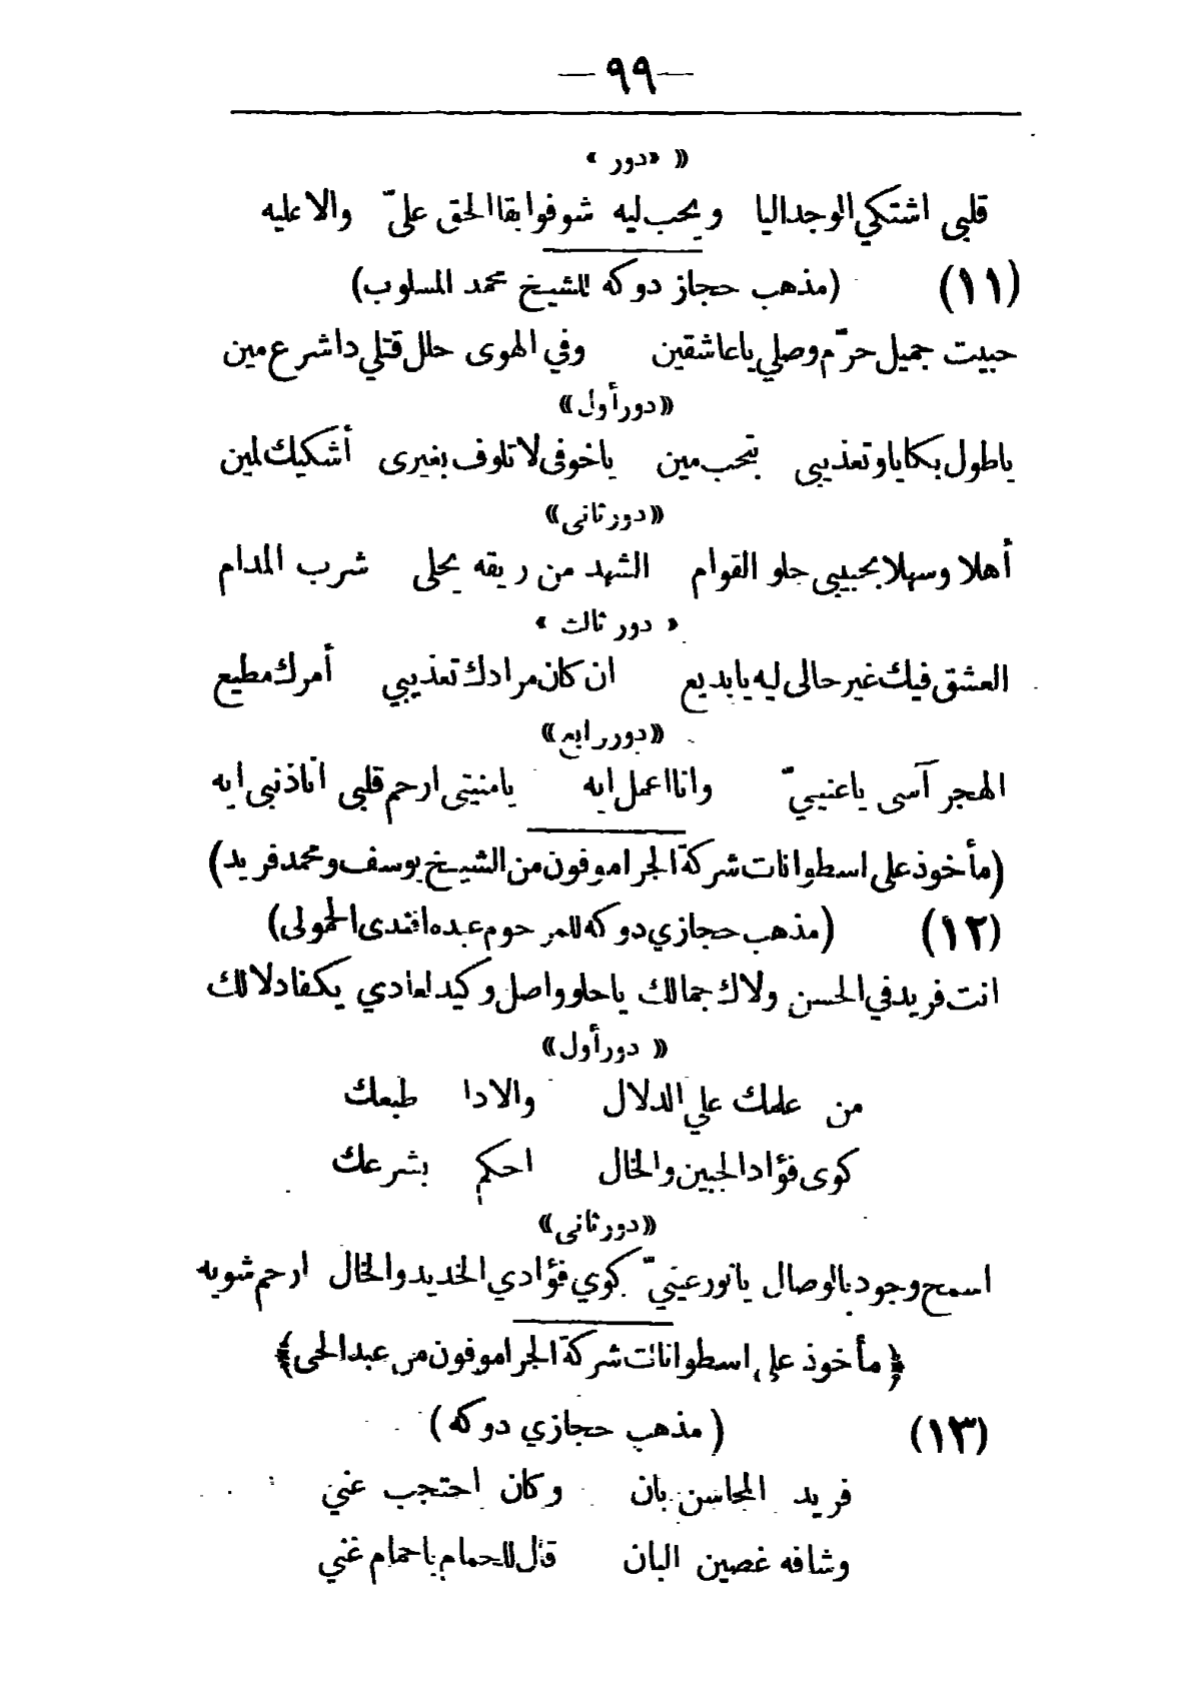 — ٩٩ —
« دور »
قلبى اشتكي الوجد اليا ويحب ليه شوفوا بقا الحق عليّ والا عليه
(١١) (مذهب حجاز دوكه للشيخ محمد المسلوب)
حبيت جميل حرّم وصلي ياعاشقين وفي الهوى حلل قتلي داشرع مين
« دور أول »
ياطول بكايا وتعذيبى بتحب مين ياخوفى لا تلوف بغيرى أشكيك لمين
« دور ثانى »
أهلا وسهلا بحبيبى حلو القوام الشهد من ريقه يحلى شرب المدام
« دور ثالث »
العشق فيك غير حالى ليه يابديع ان كان مرادك تعذيبي أمرك مطيع
« دور رابع »
الهجر آسى ياعنييّ وانا اعمل ايه يامنيتى ارحم قلبى انا ذنبى ايه
(مأخوذ على اسطوانات شركة الجراموفون من الشيخ يوسف ومحمد فريد)
(١٢) (مذهب حجازي دوكه للمرحوم عبده افندى الحمولى)
انت فريد في الحسن ولاك جمالك ياحلو واصل وكيد لعادي يكفا دلالك
« دور أول »
من علمك علي الدلال والادا طبعك
كوى فؤاد الجبين والخال احكم بشرعك
« دور ثانى »
اسمح وجود بالوصال يانور عينيّ كوي فؤادي الخديد والخال ارحم شويه
﴿ مأخوذ على اسطوانات شركة الجراموفون من عبد الحى ﴾
(١٣) ( مذهب حجازي دوكه )
فريد المحاسن بان وكان احتجب عني
وشافه غصين البان قال للحمام ياحمام غني